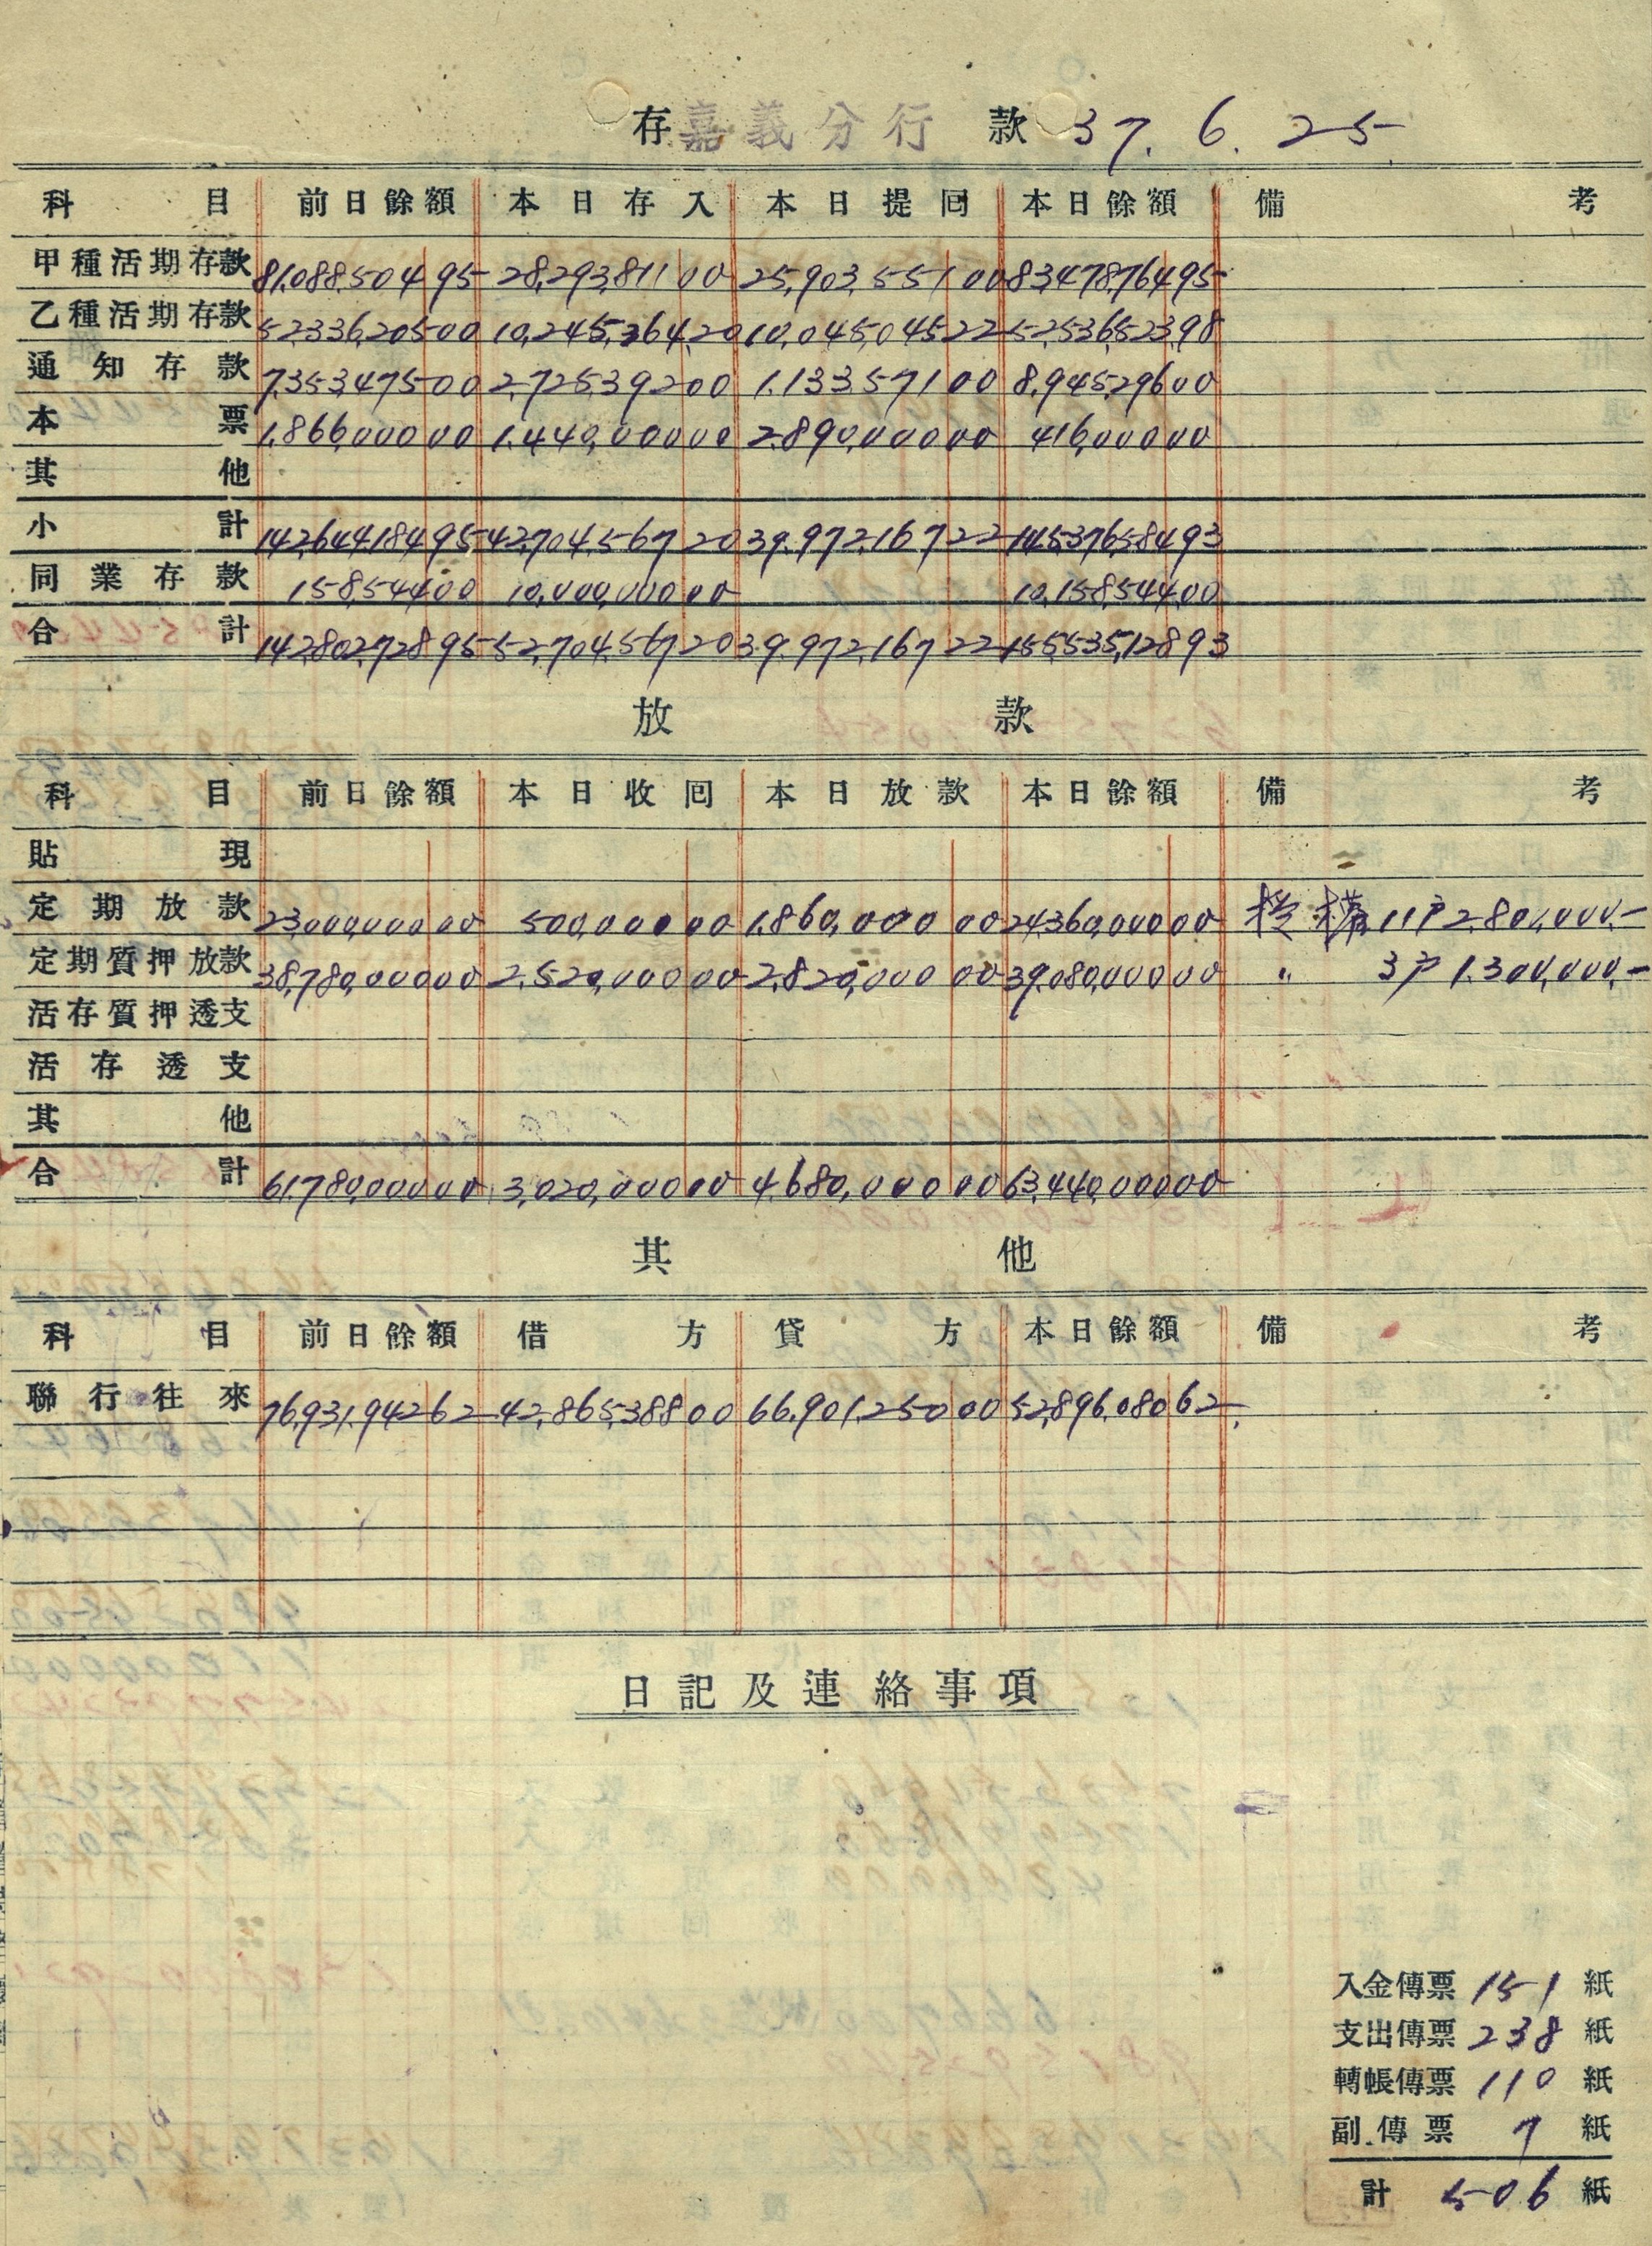 存嘉義分行款 37. 6. 25.
科目 前日餘額 本日存入 本日提囘 本日餘額 備考
甲種活期存款 81,088,504 95 28,293,811 00 25,903,551 00 83,478,764 95
乙種活期存款 52,336,205 00 10,245,364 20 10,045,045 22 52,536,523 98
通知存款 7,353,475 00 2,725,392 00 1,133,571 00 8,945,296 00
本票 1,866,000 00 1,440,000 00 2,890,000 00 416,000 00
其他
小計 142,644,184 95 42,704,567 20 39,972,167 22 145,376,584 93
同業存款 158,544 00 10,000,000 00 10,158,544 00
合計 142,802,728 95 52,704,567 20 39,972,167 22 155,535,128 93
放款
科目 前日餘額 本日收囘 本日放款 本日餘額 備考
貼現
定期放款 23,000,000 00 500,000 00 1,860,000 00 24,360,000 00 11戶 2,801,000.-
定期質押放款 38,780,000 00 2,520,000 00 2,820,000 00 39,080,000 00 〃 3戶 1,300,000.-
活存質押透支
活存透支
其他
合計 61,780,000 00 3,020,000 00 4,680,000 00 63,440,000 00
其他
科目 前日餘額 借方 貸方 本日餘額 備考
聯行往來 76,931,942 62 42,865,388 00 66,901,250 00 52,896,080 62
日記及連絡事項
入金傳票 151 紙
支出傳票 238 紙
轉帳傳票 110 紙
副傳票 7 紙
計 506 紙